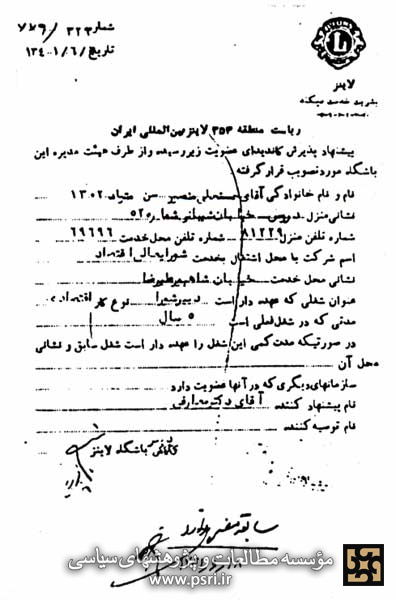 شماره ۳۲۳/۷۷۹
تاریخ ۱۳۴۰/۱/۶
لاینز
بشریت خدمت میکند
ریاست منطقه ۳۵۴ لاینز بین‌المللی ایران
پیشنهاد پذیرش کاندیدای عضویت زیر رسیده و از طرف هیئت مدیره این
باشگاه مورد تصویب قرار گرفته
نام و نام خانوادگی آقای حسنعلی منصور سن متولد ۱۳۰۲
نشانی منزل دروس خیابان شماره ۵۲۰
شماره تلفن منزل ۸۱۲۲۹ شماره تلفن محل خدمت ۶۹۶۹۶
اسم شرکت یا محل اشتغال بخدمت شورایعالی اقتصاد
نشانی محل خدمت خیابان شاهپور علیرضا
عنوان شغلی که عهده دار است دبیر شورا نوع کار اقتصادی
مدتی که در شغل فعلی است ۵ سال
در صورتیکه مدت کمی این شغل را عهده دار است شغل سابق و نشانی
محل آن
سازمانهای دیگری که در آنها عضویت دارد
نام پیشنهاد کننده آقای دکتر معارفی
نام توصیه کننده
باشگاه لاینز
سابقه
مؤسسه مطالعات و پژوهشهای سیاسی
www.psri.ir